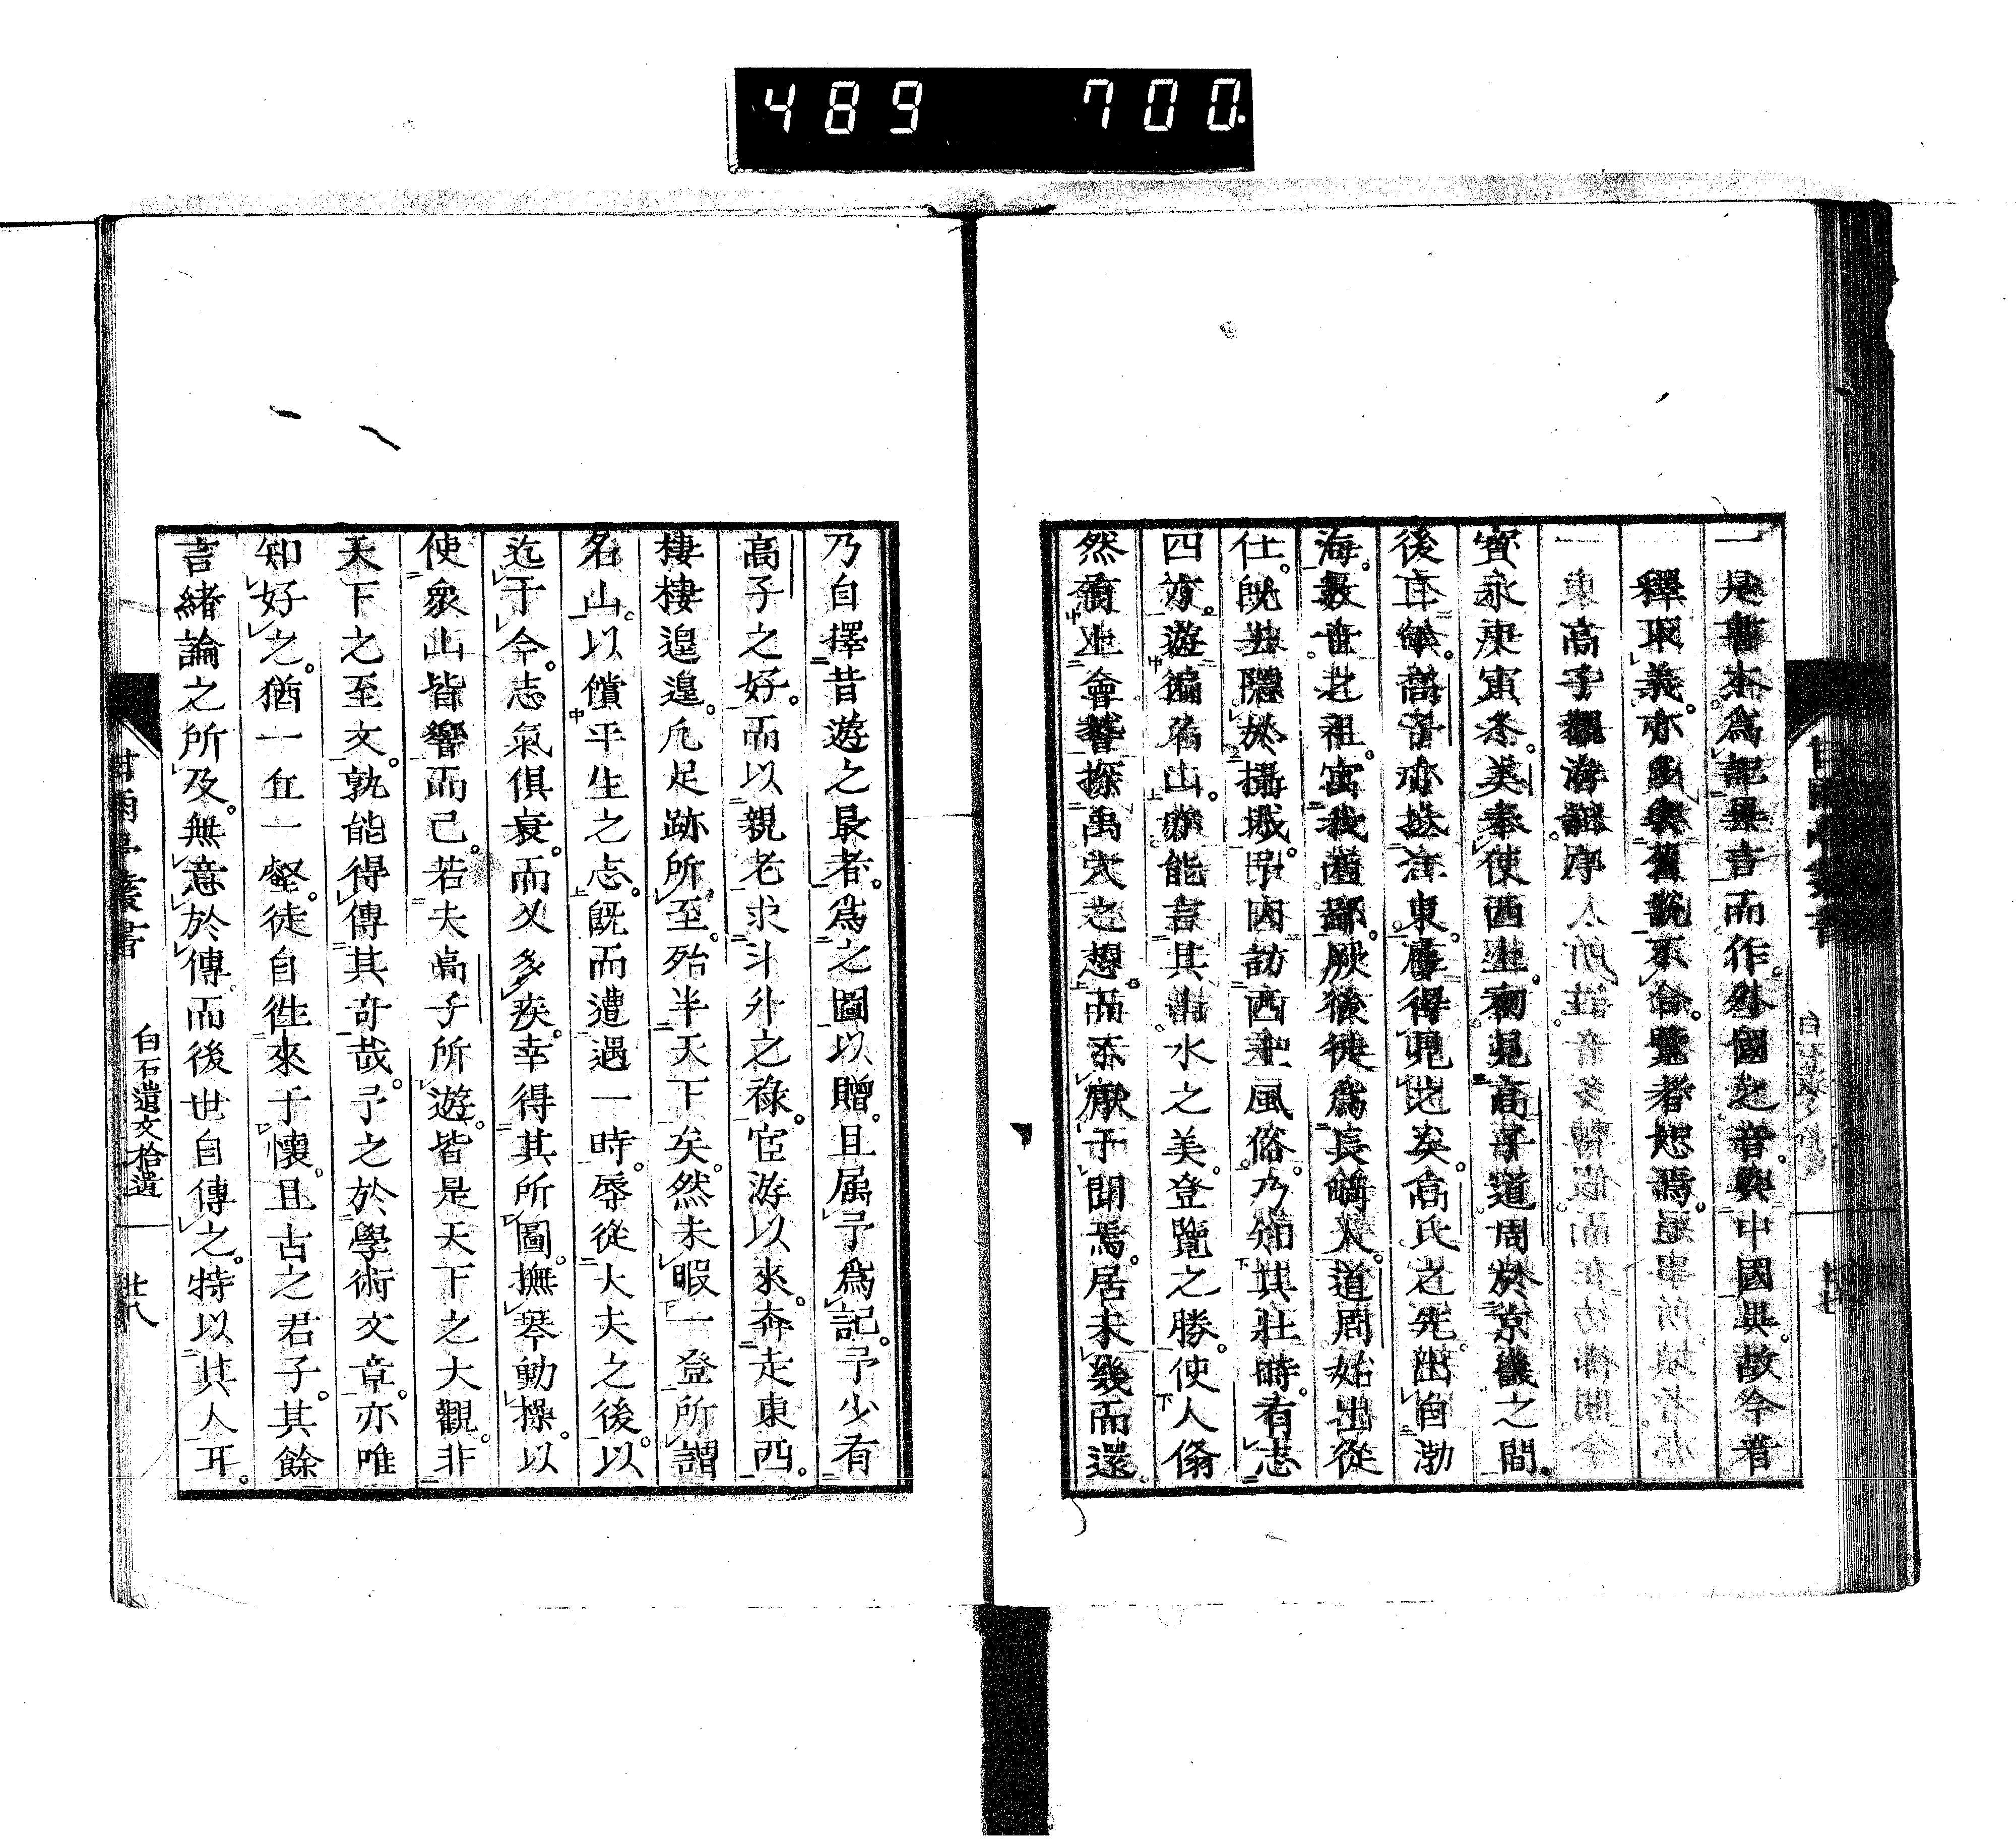 489 700.
一是書本爲記異言而作。外國之音與中國異。故今看
釋取義。亦多與舊說不合。覽者恕焉。
高子觀海記序
寶永庚寅冬。美奉使西上。初見高子道周於京畿之間。
後五年。高子亦於江東。得見之矣。高氏之先。出自渤
海。數世之祖。寓我。厥後徙爲長崎人。道周始出從
仕。既去隱於城。予因訪西土風俗。乃知其壯時。有志
四方。遊徧名山。亦能言其山水之美。登覽之勝。使人翛
然有上會稽探禹穴之想。而不厭于聞焉。居未幾而還
乃自擇昔遊之最者。爲之圖以贈。且屬予爲記。予少有
高子之好。而以親老求斗升之祿。宦游以來。奔走東西。
棲棲遑遑。凡足跡所至。殆半天下矣。然未暇一登所謂
名山。以償平生之志。既而遭遇一時。辱從大夫之後。以
迄于今。志氣俱衰。而又多疾。幸得其所圖。撫琴動操。以
使衆山皆響而已。若夫高子所遊。皆是天下之大觀。非
天下之至文。孰能得傳其奇哉。予之於學術文章。亦唯
知好之。猶一丘一壑。徒自徃來于懷。且古之君子。其餘
言緒論之所及。無意於傳而後世自傳之。特以其人耳。
甘雨亭叢書
白石遺文拾遺
廿八